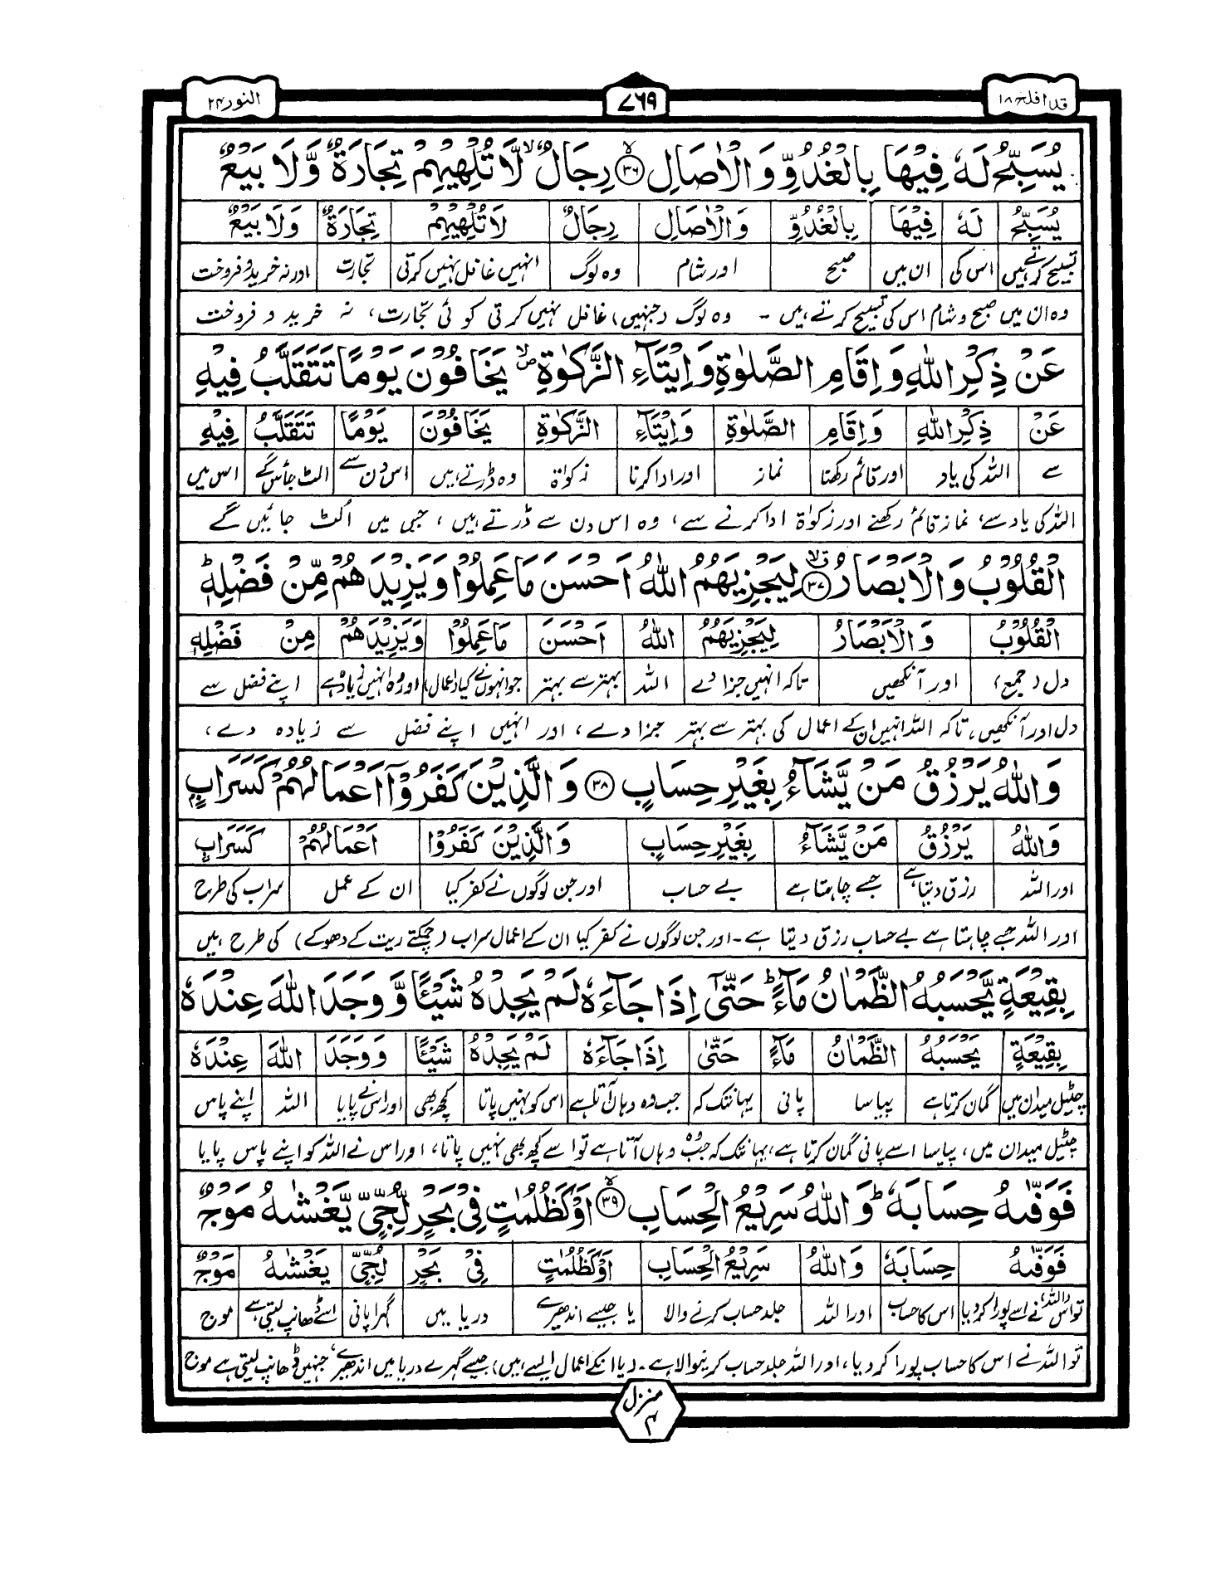 قد افلح ۱۸
۷۶۹
النور ۲۴
يُسَبِّحُ لَهٗ فِيْهَا بِالْغُدُوِّ وَالْاٰصَالِ ۙ﴿۳۶﴾ رِجَالٌ ۙ لَّا تُلْهِيْهِمْ تِجَارَةٌ وَّلَا بَيْعٌ
يُسَبِّحُ لَهٗ فِيْهَا بِالْغُدُوِّ وَالْاٰصَالِ رِجَالٌ لَا تُلْهِيْهِمْ تِجَارَةٌ وَلَا بَيْعٌ
تسبیح کرتے ہیں اس کی ان میں صبح اور شام وہ لوگ انہیں غافل نہیں کرتی تجارت اور نہ خرید و فروخت
وہ ان میں صبح و شام اس کی تسبیح کرتے ہیں ۔ وہ لوگ (جنہیں) غافل نہیں کرتی کوئی تجارت، نہ خرید و فروخت
عَنْ ذِكْرِ اللّٰهِ وَاِقَامِ الصَّلٰوةِ وَاِيْتَآءِ الزَّكٰوةِ ۙ يَخَافُوْنَ يَوْمًا تَتَقَلَّبُ فِيْهِ
عَنْ ذِكْرِ اللّٰهِ وَاِقَامِ الصَّلٰوةِ وَاِيْتَآءِ الزَّكٰوةِ يَخَافُوْنَ يَوْمًا تَتَقَلَّبُ فِيْهِ
سے اللہ کی یاد اور قائم رکھنا نماز اور ادا کرنا زکوٰۃ وہ ڈرتے ہیں اس دن سے الٹ جائیں گے اس میں
اللہ کی یاد سے، نماز قائم رکھنے اور زکوٰۃ ادا کرنے سے، وہ اس دن سے ڈرتے ہیں، جس میں الٹ جائیں گے
الْقُلُوْبُ وَالْاَبْصَارُ ﴿۳۷﴾ لِيَجْزِيَهُمُ اللّٰهُ اَحْسَنَ مَا عَمِلُوْا وَيَزِيْدَهُمْ مِّنْ فَضْلِهٖ ؕ
الْقُلُوْبُ وَالْاَبْصَارُ لِيَجْزِيَهُمُ اللّٰهُ اَحْسَنَ مَا عَمِلُوْا وَيَزِيْدَهُمْ مِنْ فَضْلِهٖ
دل (جمع) اور آنکھیں تاکہ انہیں جزا دے اللہ بہتر سے بہتر جو انہوں نے کیا (اعمال) اور وہ انہیں زیادہ دے اپنے فضل سے
دل اور آنکھیں، تاکہ اللہ انہیں ان کے اعمال کی بہتر سے بہتر جزا دے، اور انہیں اپنے فضل سے زیادہ دے،
وَاللّٰهُ يَرْزُقُ مَنْ يَّشَآءُ بِغَيْرِ حِسَابٍ ﴿۳۸﴾ وَالَّذِيْنَ كَفَرُوْٓا اَعْمَالُهُمْ كَسَرَابٍۭ
وَاللّٰهُ يَرْزُقُ مَنْ يَّشَآءُ بِغَيْرِ حِسَابٍ وَالَّذِيْنَ كَفَرُوْا اَعْمَالُهُمْ كَسَرَابٍ
اور اللہ رزق دیتا ہے جسے چاہتا ہے بے حساب اور جن لوگوں نے کفر کیا ان کے عمل سراب کی طرح
اور اللہ جسے چاہتا ہے بے حساب رزق دیتا ہے ۔ اور جن لوگوں نے کفر کیا ان کے اعمال سراب (چمکتے ریت کے دھوکے) کی طرح ہیں
بِقِيْعَةٍ يَّحْسَبُهُ الظَّمْاٰنُ مَآءً ؕ حَتّٰىٓ اِذَا جَآءَهٗ لَمْ يَجِدْهُ شَيْـًٔا وَّوَجَدَ اللّٰهَ عِنْدَهٗ
بِقِيْعَةٍ يَحْسَبُهُ الظَّمْاٰنُ مَآءً حَتّٰى اِذَا جَآءَهٗ لَمْ يَجِدْهُ شَيْـًٔا وَوَجَدَ اللّٰهَ عِنْدَهٗ
چٹیل میدان میں گمان کرتا ہے پیاسا پانی یہانتک کہ جب وہ وہاں آتا ہے اس کو نہیں پاتا کچھ بھی اور اس نے پایا اللہ اپنے پاس
چٹیل میدان میں، پیاسا اسے پانی گمان کرتا ہے، یہانتک کہ جب وہ وہاں آتا ہے تو اسے کچھ بھی نہیں پاتا، اور اس نے اللہ کو اپنے پاس پایا
فَوَفّٰىهُ حِسَابَهٗ ؕ وَاللّٰهُ سَرِيْعُ الْحِسَابِ ۙ﴿۳۹﴾ اَوْ كَظُلُمٰتٍ فِيْ بَحْرٍ لُّجِّيٍّ يَّغْشٰىهُ مَوْجٌ
فَوَفّٰىهُ حِسَابَهٗ وَاللّٰهُ سَرِيْعُ الْحِسَابِ اَوْ كَظُلُمٰتٍ فِيْ بَحْرٍ لُجِّيٍّ يَغْشٰىهُ مَوْجٌ
تو اس (اللہ) نے اسے پورا کر دیا اس کا حساب اور اللہ جلد حساب کرنے والا یا جیسے اندھیرے دریا میں گہرا پانی اسے ڈھانپ لیتی ہے موج
تو اللہ نے اس کا حساب پورا کر دیا، اور اللہ جلد حساب کرنیوالا ہے ۔ (یا انکے اعمال ایسے ہیں) جیسے گہرے دریا میں اندھیرے، جنہیں ڈھانپ لیتی ہے موج
منزل ۴